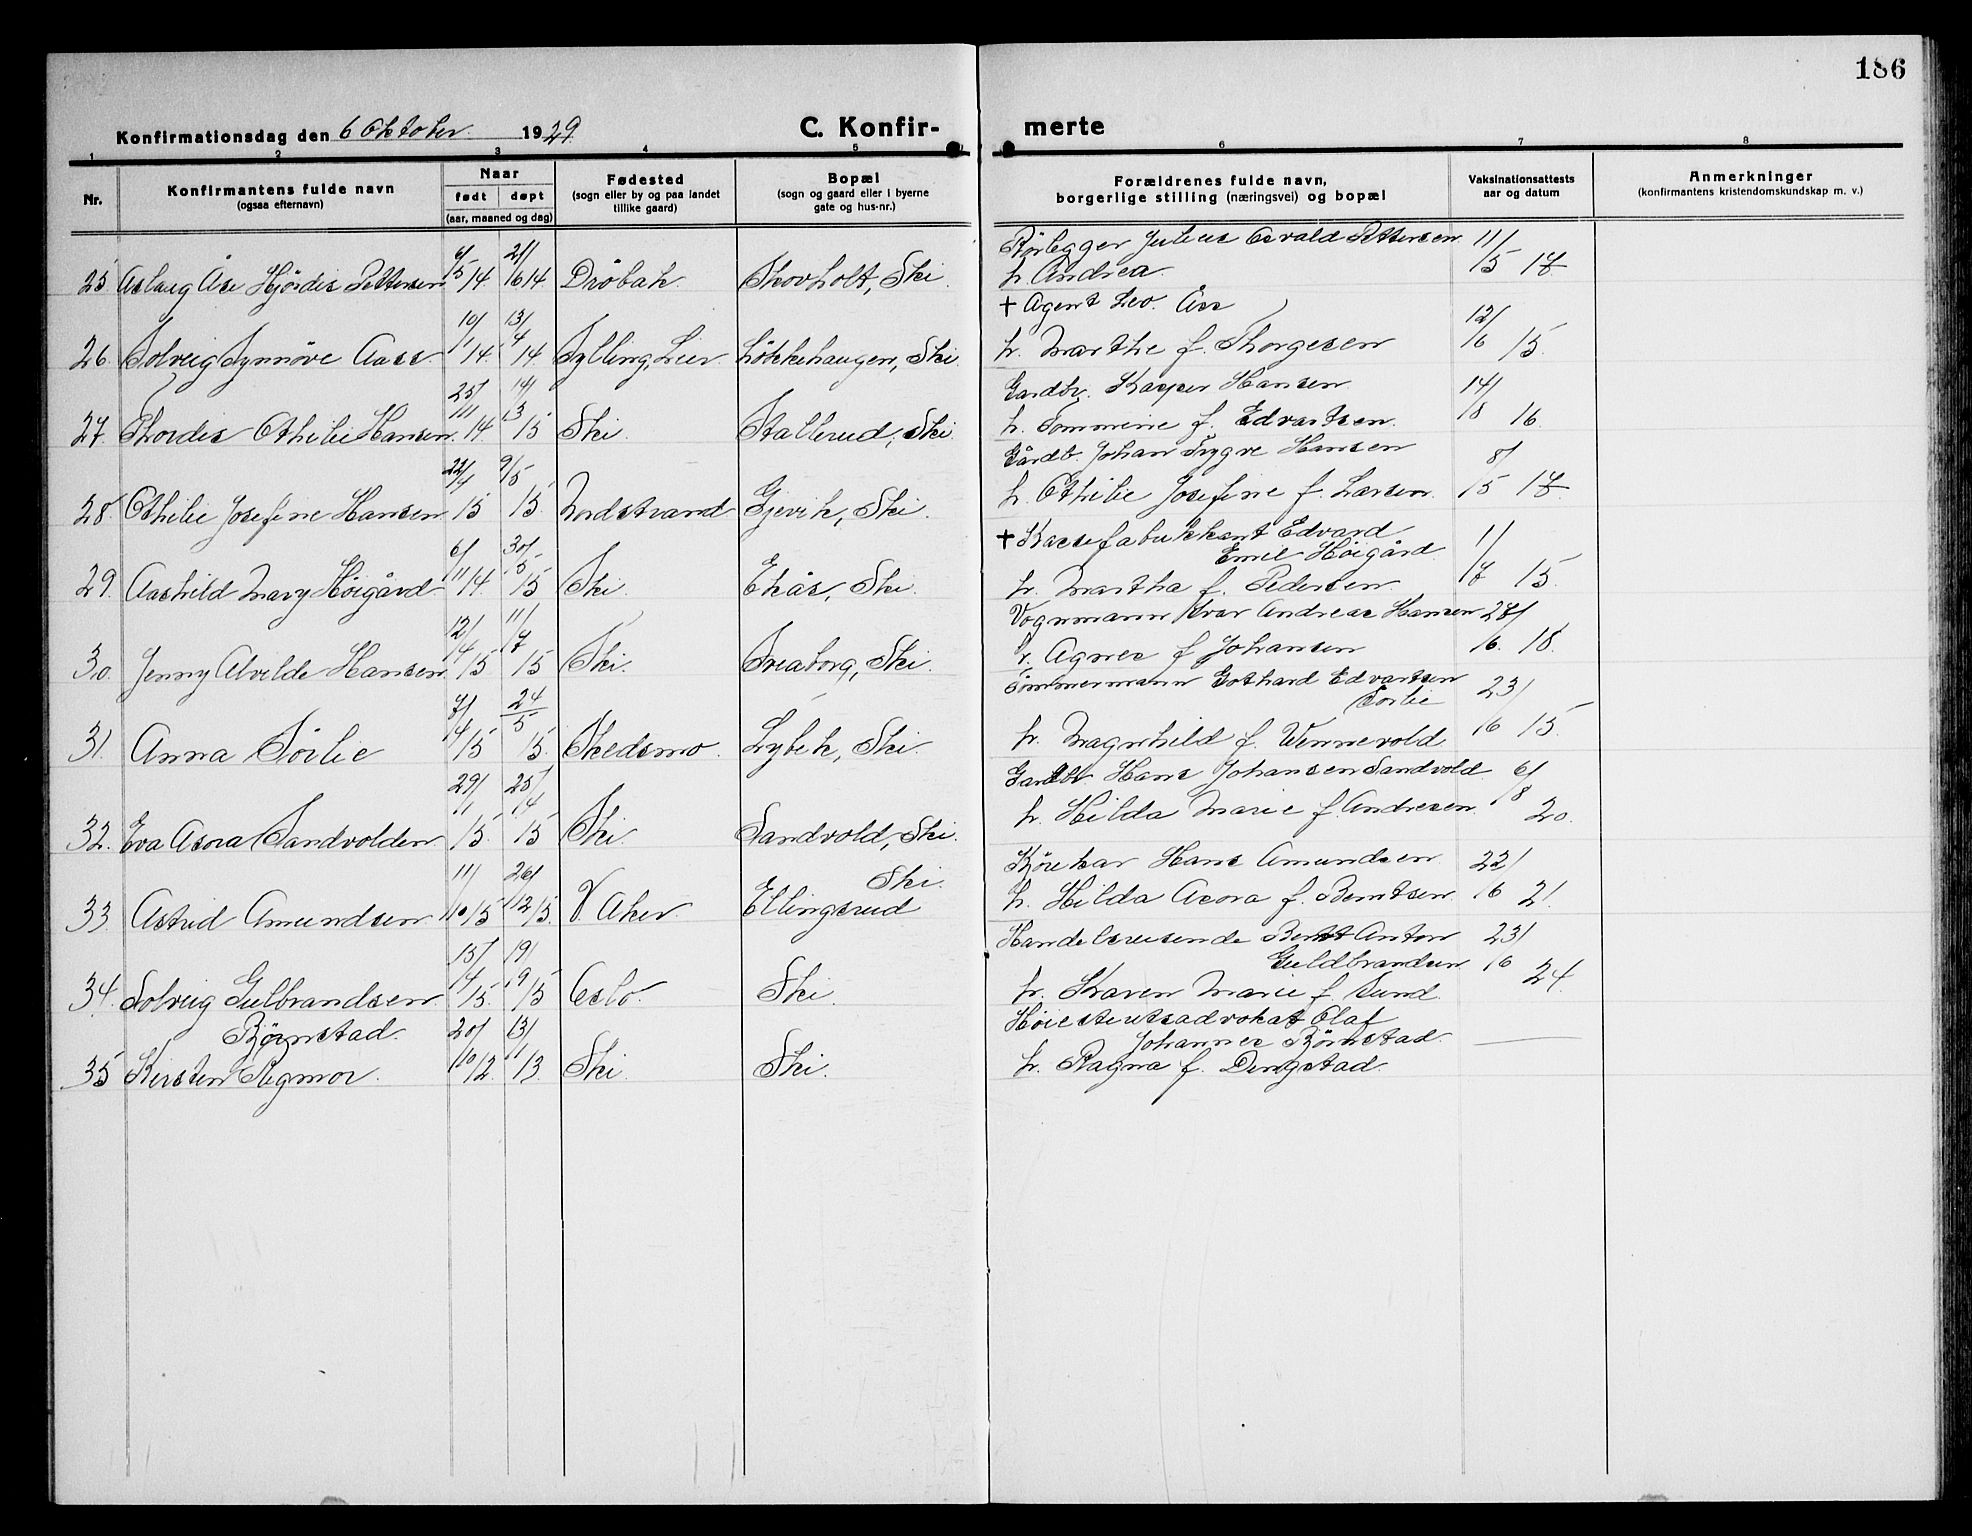 186
Konfirmationsdag den 6 Oktober 1929.
C. Konfirmerte
1 2 3 4 5 6 7 8
Nr.
Konfirmantens fulde navn
(ogsaa efternavn)
Naar
født døpt
(aar, maaned og dag)
Fødested
(sogn eller by og paa landet
tillike gaard)
Bopæl
(sogn og gaard eller i byerne
gate og hus-nr.)
Forældrenes fulde navn,
borgerlige stilling (næringsvei) og bopæl
Vaksinationsattests
aar og datum
Anmerkninger
(konfirmantens kristendomskundskap m. v.)
25 Aslaug Åse Hjørdis Pettersen 14 21/6 14 Drøbak Skovholt, Ski.
Rørlegger Julius Osvald Pettersen 11/5 17
h. Andrea
26. Solveig Synnøve Aass 10/1 14. 13/4 14 Sylling, Lier Løkkehaugen, Ski.
+ Agent Leo. Åss 12/6 15.
h. Marthe f. Thorgesen
27. Thordis Othilie Hansen 25/11 14 14/3 15 Ski. Stallerud, Ski.
Gardbr. Kasper Hansen 14/8 16.
h. Tommine f. Edvartsen
28. Othilie Josefine Hansen 22/4 15 9/5 15 Nordstrand Gjevik, Ski.
Gårdb. Johan Trygve Hansen 8/5 17
h. Othilie Josefine f. Larsen.
29. Aashild Mary Høigård 6/11 14. 30/5 15 Ski. Ekås, Ski.
+ Kassefabrikkant Edvard
Emil Høigård 11/7 15.
h. Martha f. Pedersen.
30. Jenny Alvilde Hansen 12/4 15 11/7 15 Ski. Sveaborg, Ski.
Vognmann Ivar Andreas Hansen 27/6 18.
h. Agnes f. Johansen
31. Anna Sørlie 7/4 15 24/5 15. Skedsmo Lybek, Ski.
Tømmermann Gothard Edvartsen
Sørlie 23/6 15.
h. Magnhild f. Wennevold
32. Eva Asora Sandvolden 29/1 15. 25/4 15 Ski Sandvold, Ski.
Gardbr Hans Johansen Sandvold 6/8 20.
h. Hilda Marie f. Andresen.
33. Astrid Amundsen 11/10 15 26/12 15. V. Aker. Ellingsrud Ski.
Kørekar Hans Amundsen 22/6 21.
h. Hilda Asora f. Berntsen
34. Solveig Gulbrandsen 15/4 15. 19/9 15 Oslo. Ski.
Handelsreisende Bernt Anton
Guldbrandsen 23/6 24.
h. Karen Marie f. Sund.
35 Kirsten Regmor Bjørnstad. 20/10 12. 13/1 13. Ski. Ski.
Høiesterettsadvokat Olaf
Johannes Bjørnstad.
h. Ragna f. Dengstad.